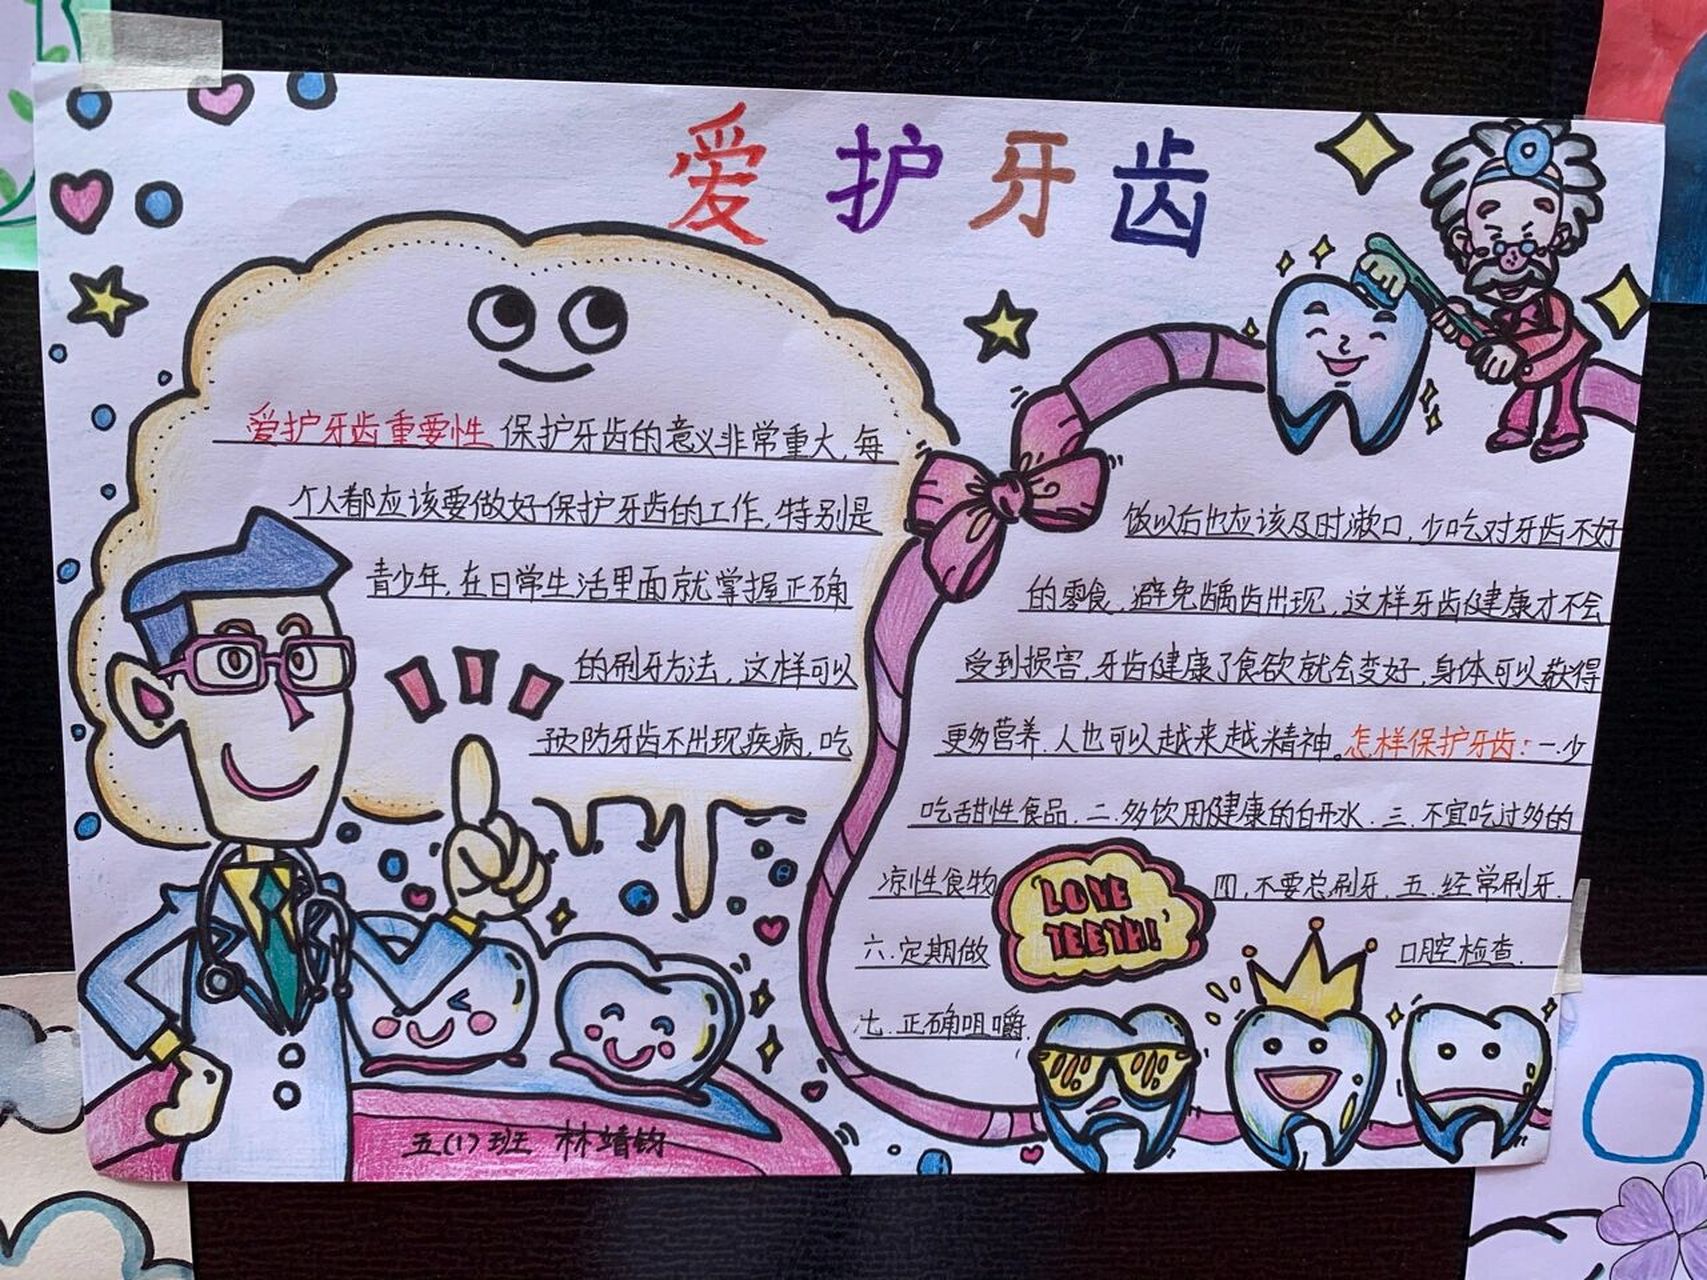 爱护牙齿
爱护牙齿重要性 保护牙齿的意义非常重大,每
个人都应该要做好保护牙齿的工作,特别是
青少年,在日常生活里面就掌握正确
的刷牙方法,这样可以
预防牙齿不出现疾病,吃
饭以后也应该及时漱口,少吃对牙齿不好
的零食,避免龋齿出现,这样牙齿健康才不会
受到损害,牙齿健康了食欲就会变好,身体可以获得
更多营养,人也可以越来越精神。怎样保护牙齿:一.少
吃甜性食品.二.多饮用健康的白开水.三.不宜吃过多的
凉性食物 四.不要总刷牙.五.经常刷牙.
LOVE
TEETH!
六.定期做 口腔检查.
七.正确咀嚼.
五(1)班 林靖钧